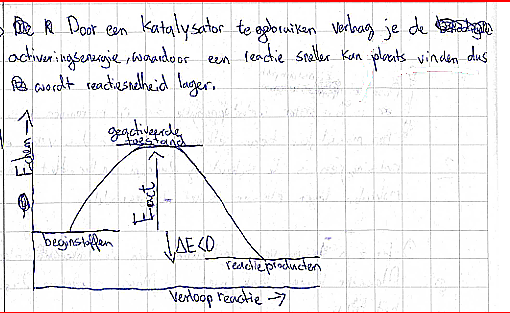 Door een katalysator te gebruiken verlaag je de
activeringsenergie, waardoor een reactie sneller kan plaats vinden dus
wordt reactiesnelheid lager.
geactiveerde
toestand
Echem →
Eact
beginstoffen
ΔE<0
reactieproducten
Verloop reactie →